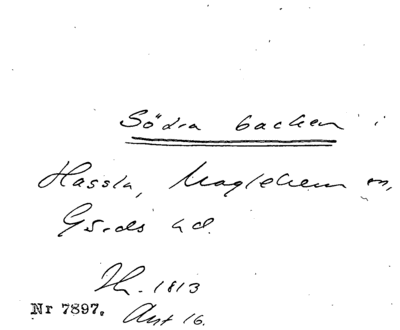 Södra backen i
Hassla, Maglehem sn,
Gärds hd.
Th. 1813
Nr 7897. Ant 16.